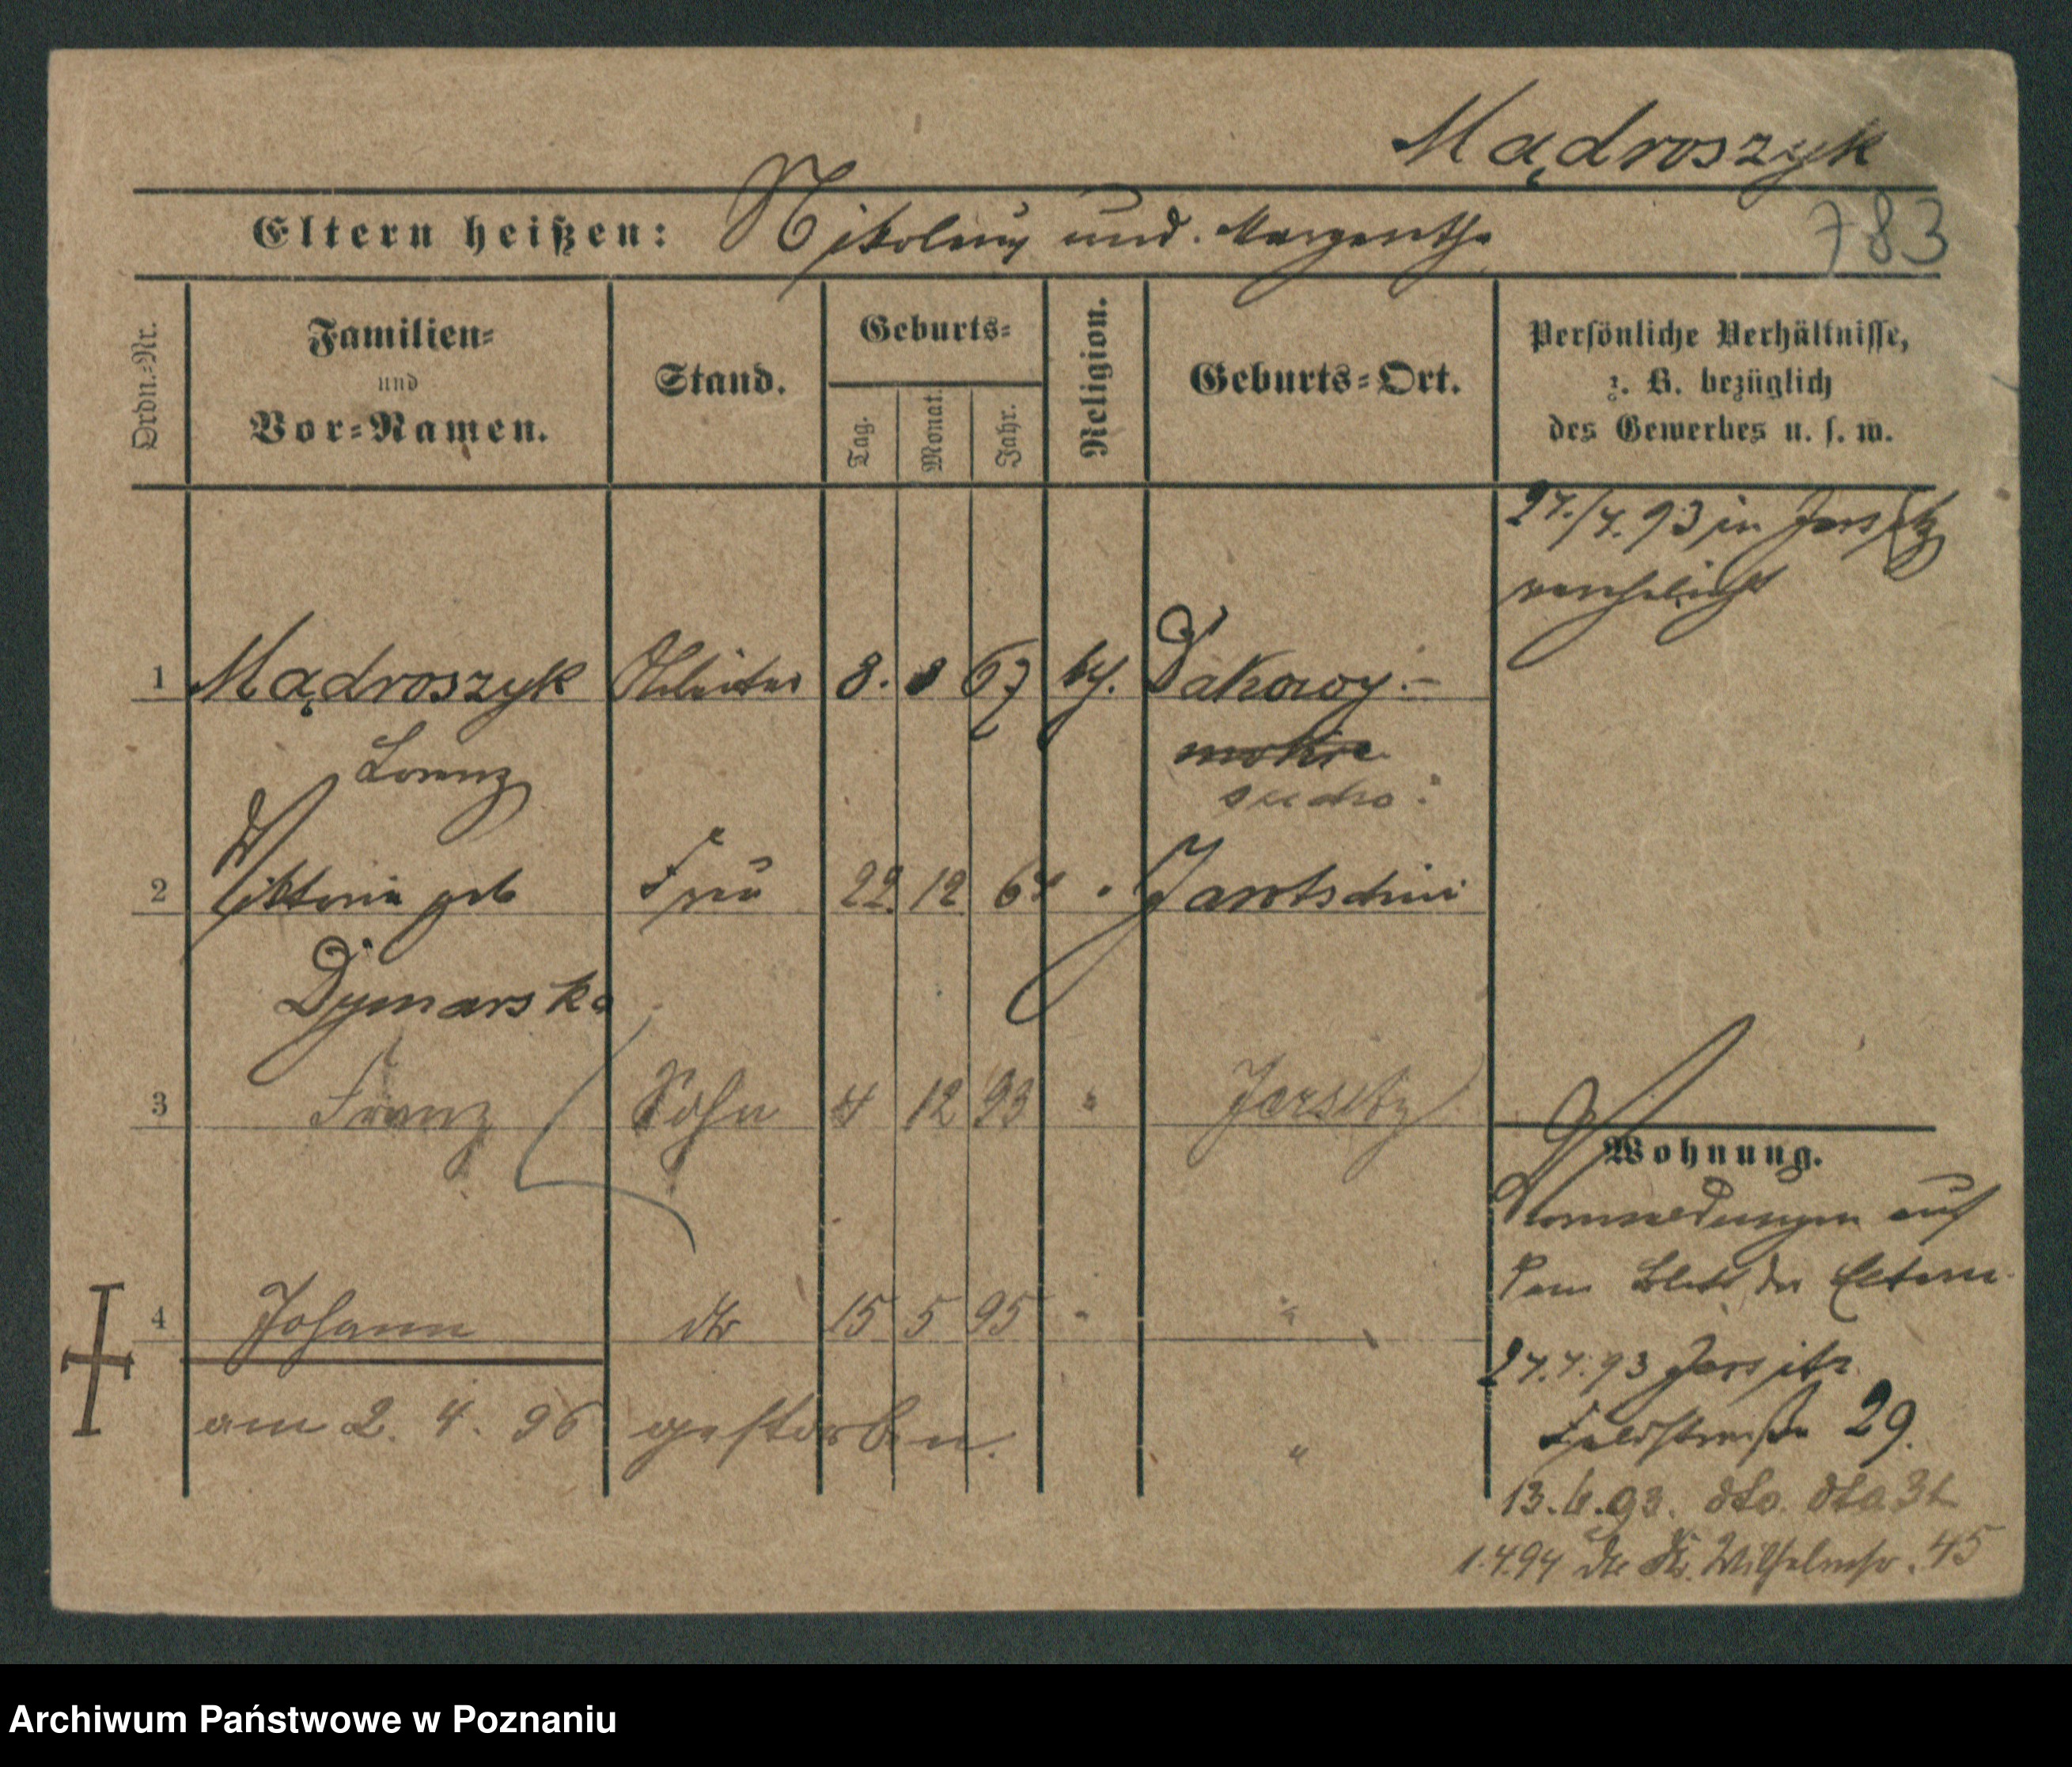 Mądroszyk
Eltern heißen: Nikolaus und Margaretha
783
Ordn.-Nr.
Familien-
und
Vor-Namen.
Stand.
Geburts-
Tag.
Monat.
Jahr.
Religion.
Geburts-Ort.
Persönliche Verhältnisse,
z. B. bezüglich
des Gewerbes u. s. w.
in Jersitz
verehelicht
1 Mądroszyk Arbeiter 8. 8 67 Dakowy-
Lorenz mokre
sucho
2 Viktoria geb Frau 22. 12 Jarotschin
Dymarska
3 Franz Sohn 4 12 93 " Jersitz
Wohnung.
auf
dem Blatt der Eltern.
4 Johann dto 15 5 95 " "
27.7.93 Jersitz
Feldstraße 29.
am 2. 4. 96 gestorben. "
93. dto. dto 31
1.4.94 Wilhelmstr. 45
Archiwum Państwowe w Poznaniu